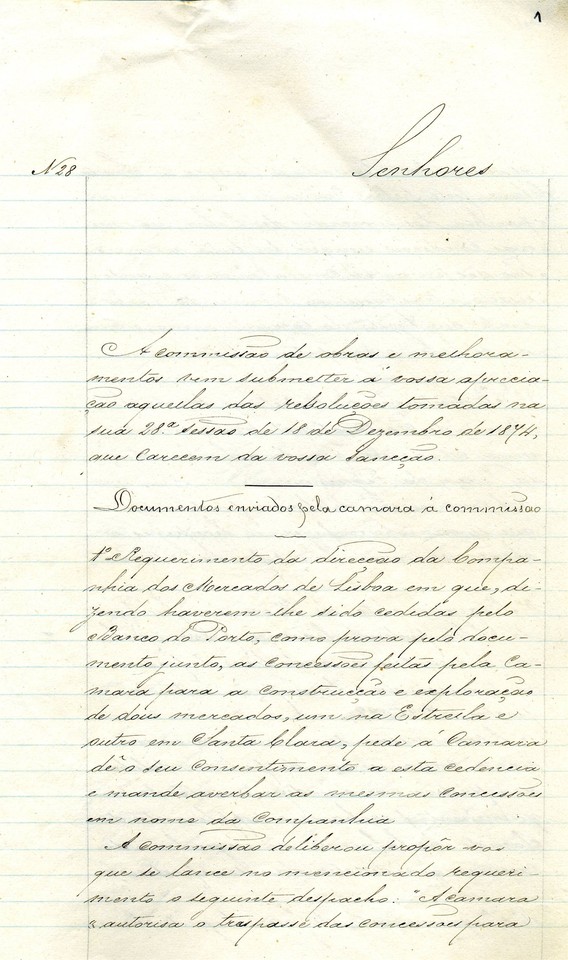 1
Nº 28
Senhores
A commissão de obras e melhora-
mentos vem submetter á vossa aprecia-
ção aquellas das resoluções tomadas na
sua 28.ª sessão de 18 de Dezembro de 1874,
que carecem da vossa sancção.
Documentos enviados pela camara á commissão
1º Requerimento da direcção da Compa-
nhia dos Mercados de Lisboa em que, di-
zendo haverem-lhe sido cedidas pelo
Banco do Porto, como prova pelo docu-
mento junto, as concessões feitas pela Ca-
mara para a construcção e exploração
de dous mercados, um na Estrella e
outro em Santa Clara, pede á Camara
dê o seu consentimento a esta cedencia
e mande averbar as mesmas concessões
em nome da Companhia
A commissão deliberou propôr-vos
que se lance no mencionado requeri-
mento o seguinte despacho: "A camara
"autorisa o trespasse das concessões para